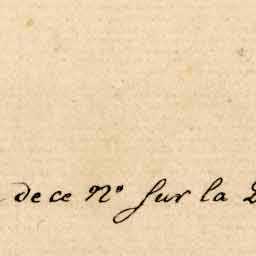 de ce N.º sur la